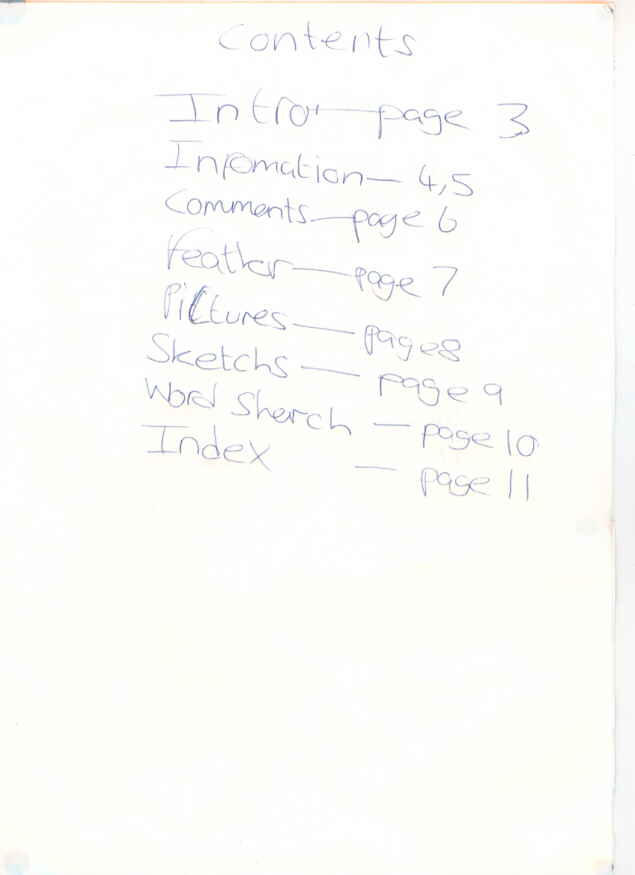 Contents
Intro — page 3
Infomation — 4,5
Comments — page 6
Feather — page 7
Pictures — page 8
Sketchs — page 9
Word Sherch — page 10
Index — page 11